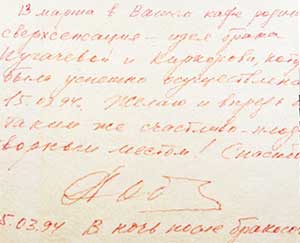 13 марта в Вашем кафе роди
сверхсенсация – идея брака
Пугачевой и Киркорова, кот
была успешно осуществлена
15.03.94. Желаю и впредь б
таким же счастливо-плод
ворным местом! Спасибо
5.03.94 В ночь после бракос